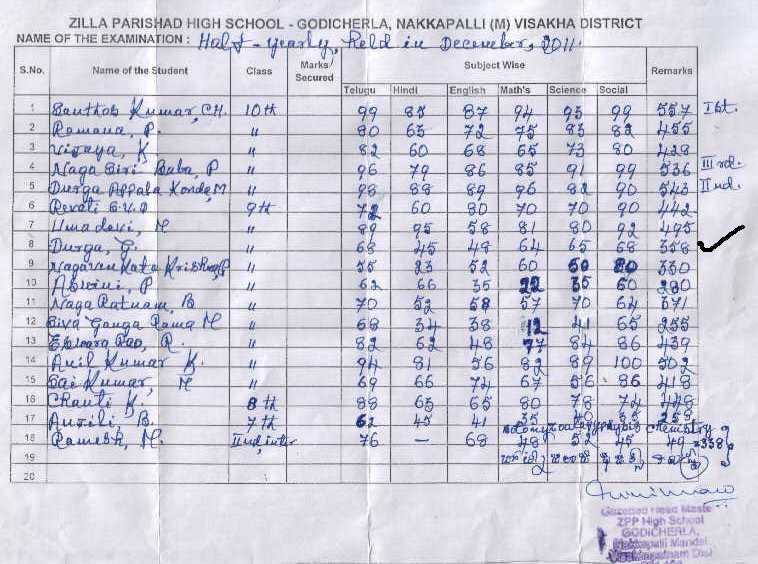 ZILLA PARISHAD HIGH SCHOOL - GODICHERLA, NAKKAPALLI (M) VISAKHA DISTRICT
NAME OF THE EXAMINATION : Half-yearly, Held in December, 2011.
S.No. Name of the Student Class Marks Secured Subject Wise Remarks
Telugu Hindi English Math's Science Social
1 Santhosh Kumar, CH. 10th 99 85 87 94 93 99 557 Ist.
2 Ramana, P. " 80 63 72 75 83 82 455
3 Vijaya, K " 82 60 68 65 73 80 428
4 Naga Siri Baba, P " 96 79 86 85 91 99 536 IIIrd.
5 Durga Appala Konda, M " 98 88 89 96 82 90 543 IInd.
6 Revati 9th 72 60 80 70 70 90 442
7 Umadevi, M " 89 95 58 81 80 92 495
8 Durga, G. " 68 45 48 64 65 68 358
9 " 55 23 52 60 60 80 330
10 Aswini, P " 62 66 35 22 35 60 280
11 Naga Ratnam, B " 70 52 58 57 70 64 371
12 Siva Ganga Rama M " 68 34 38 12 41 65 255
13 Eswara Rao, R. " 82 62 48 77 84 86 439
14 Anil Kumar K. " 94 81 56 82 89 100 502
15 Sai Kumar, M " 69 66 74 67 56 86 418
16 Chanti K. 8th 88 65 65 80 78 72 448
17 B. 7th 62 45 41 35 40 35 258
Botony Zoology physics chemistry
18 Ramesh, M. IInd, inter 76 – 68 48 52 45 49 =338
19
20
Gazetted Head Maste
ZPP High School
GODICHERLA,
Nakkapalli Mandal
Visakhapatnam Dist